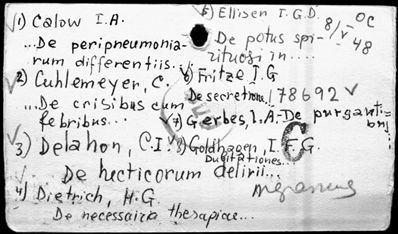 1) Calow I.A.
...De peripneumonia-
rum differentiis....
2) Cuhlemeyer, C.
...De crisibus cum
febribus...
3) Delahon, C.I.
De hecticorum delirii...
4) Dietrich, H.G.
De necessaria therapiae...
5) Ellisen I.G.D.
De potus spi-
rituosi in....
6) Fritze I.G
De secretione
178692
7) Gerbes, I.A. De purganti-
bus
8) Goldhagen, I.F.G.
Dubitationes...
OC
8/V-48
C